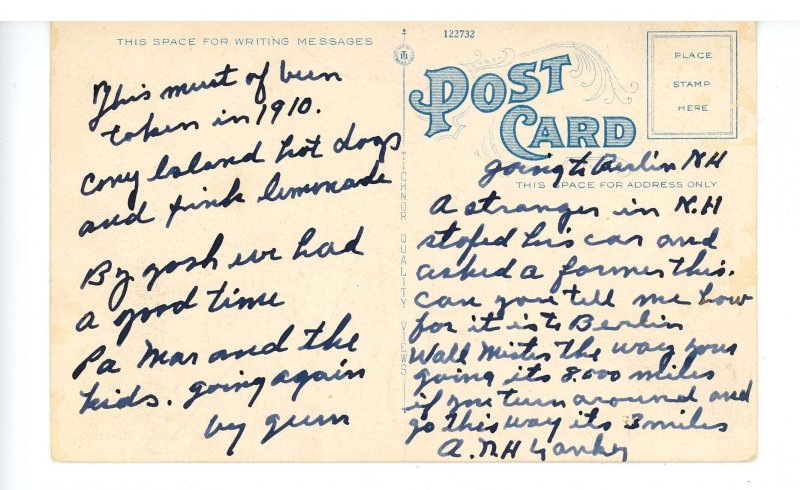 THIS SPACE FOR WRITING MESSAGES
This must of bin
taken in 1910.
Cony Island hot dogs
and pink limonade
By gosh we had
a good time
Pa Mar and the
kids. going again
by gum
TICHNOR QUALITY VIEWS
122732
POST
CARD
PLACE
STAMP
HERE
going to Berlin NH
THIS SPACE FOR ADDRESS ONLY
A stranger in N.H
stoped his car and
asked a farmer this.
Can you tell me how
far it is to Berlin
Wall Mister The way your
going its 8.000 miles
if you turn around and
go This way its 3 miles
A. NH Yankey